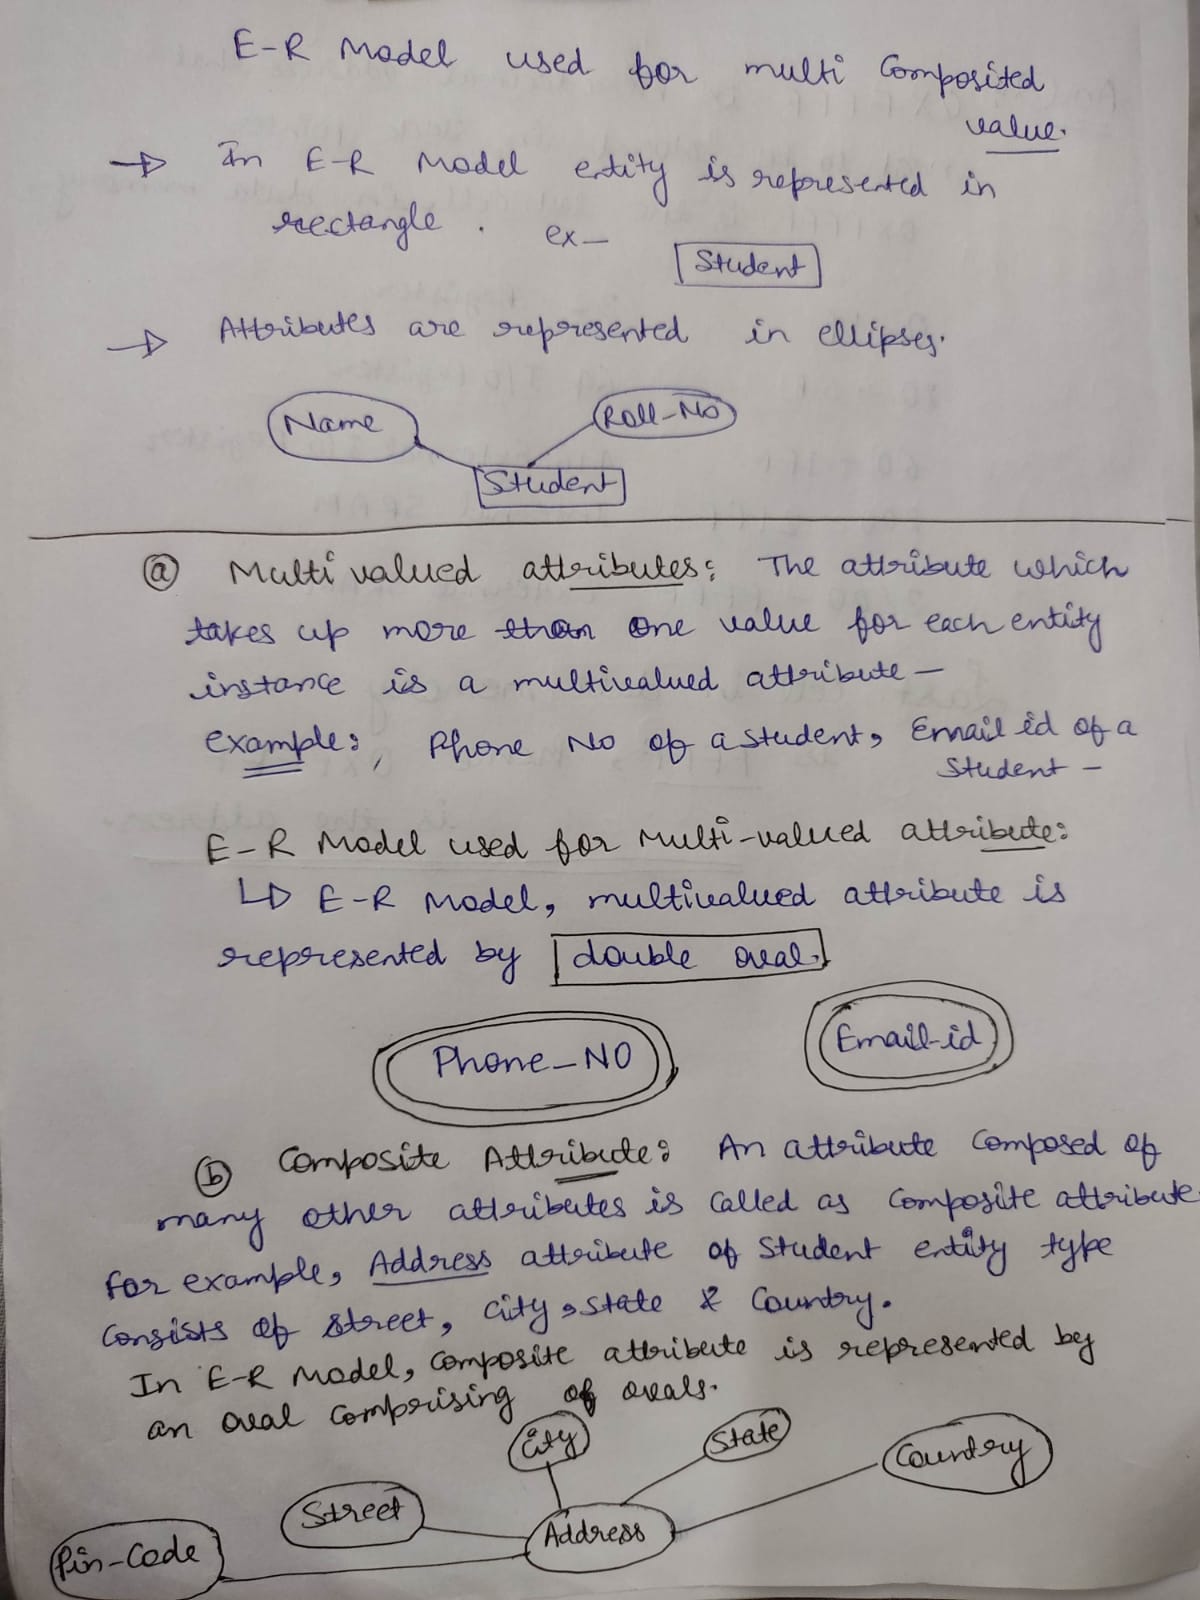 E-R Model used for multi Composited
value.
→ In E-R Model entity is represented in
rectangle. ex- Student
→ Attributes are represented in ellipses.
Name Roll-No
Student
(a) Multi valued attributes: The attribute which
takes up more than one value for each entity
instance is a multivalued attribute -
example: Phone No of a student, Email id of a
Student -
E-R Model used for Multi-valued attribute:
↳ E-R Model, multivalued attribute is
represented by double oval.
Phone_NO Email-id
(b) Composite Attribute: An attribute Composed of
many other attributes is Called as Composite attribute.
for example, Address attribute of Student entity type
Consists of Street, City, State & Country.
In E-R Model, Composite attribute is represented by
an oval Comprising of ovals.
City State Country
Street Address
Pin-Code